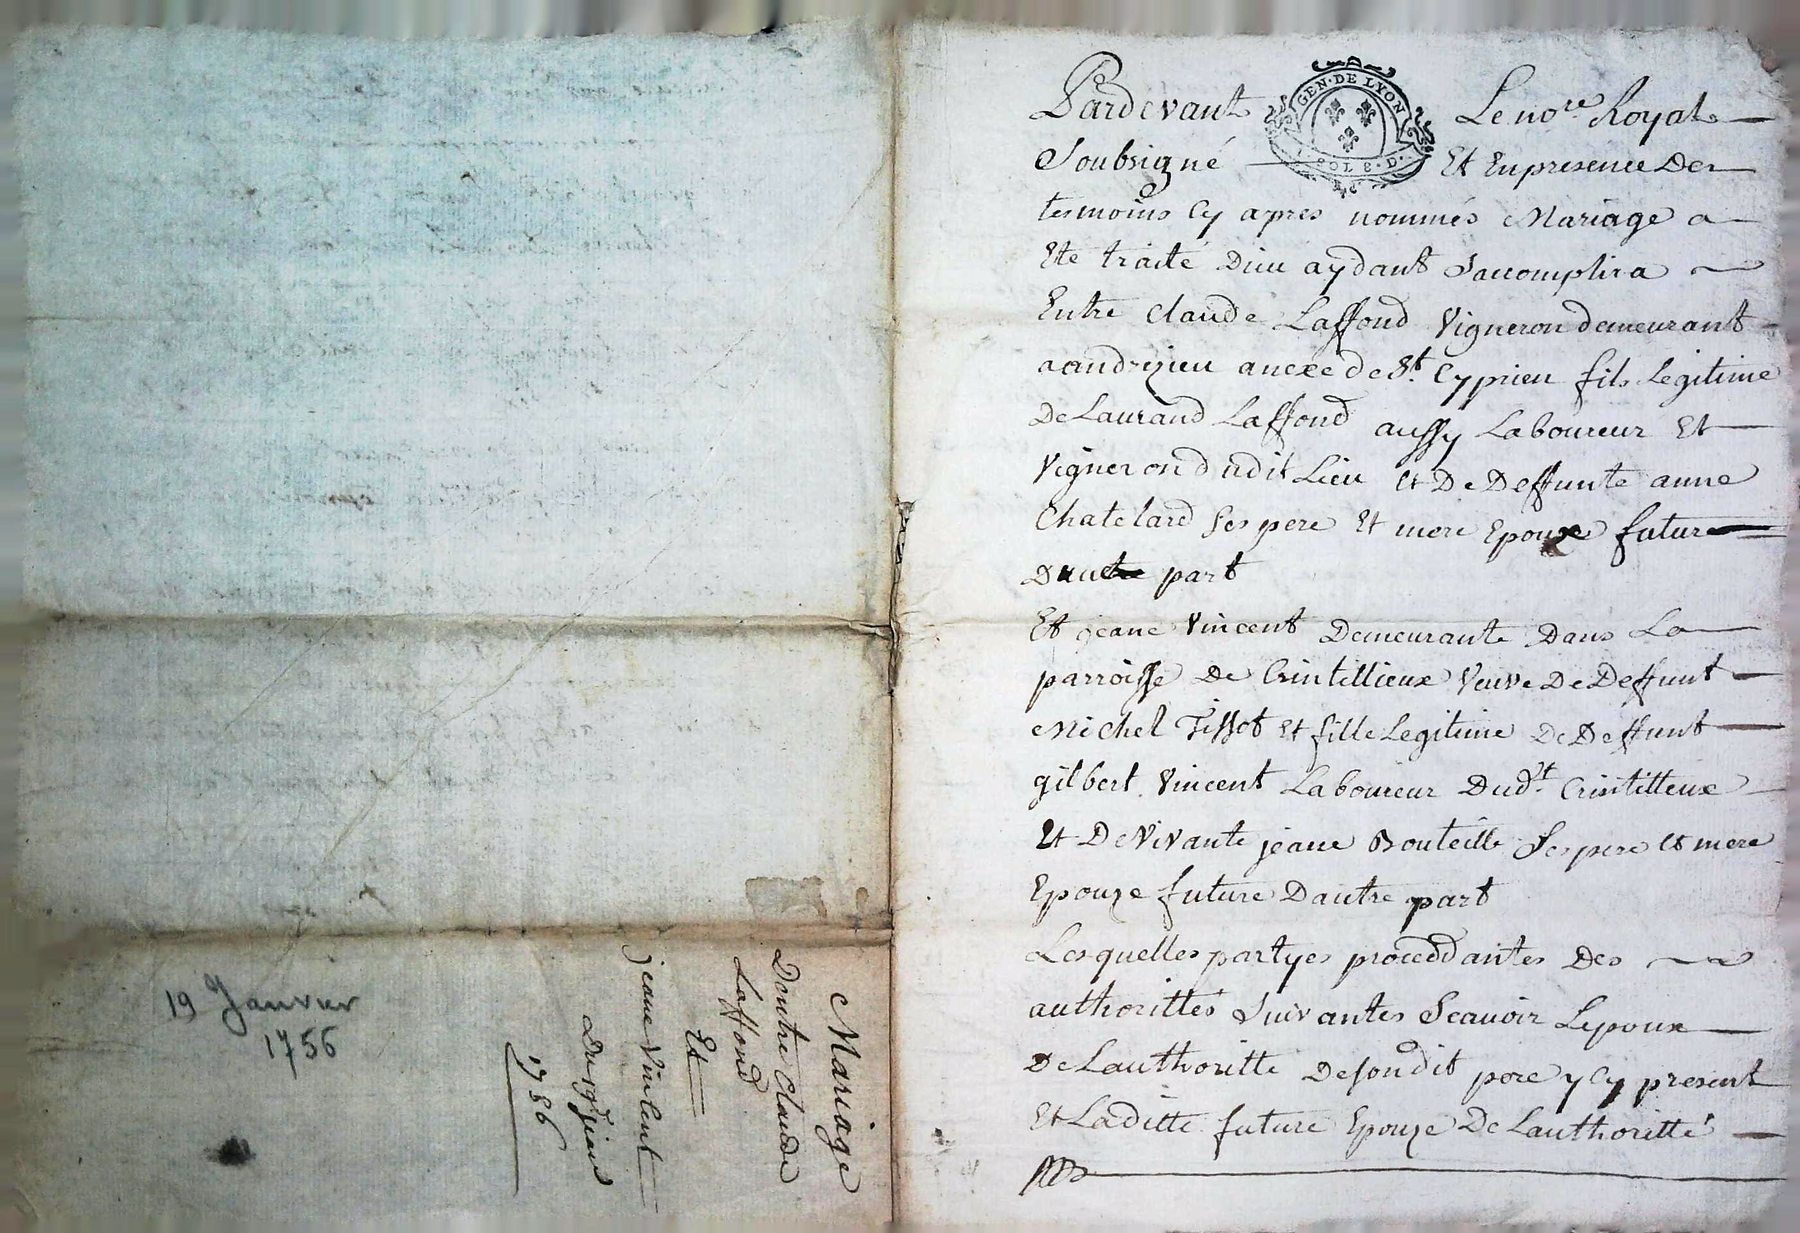 19 Janvier
1756
Mariage
Dentre Claude
Laffond
Et
jeane Vincent
Du 19e Janv
1756
Pardevant Le nore Royal
GEN. DE LYON
Soubsigné Et En presence Des
tesmoins Cy apres nommés Mariage a
Ete traité Dieu aydant Saccomplira
Entre Claude Laffond Vigneron demeurant
a andrezieu anexe de St. Cyprien fils Legitime
De Laurand Laffond aussy Laboureur Et
Vigneron dudit Lieu et De Deffunte anne
Chatelard ses pere Et mere Epoux futur
Dune part
Et jeane Vincent Demeurante Dans La
parroisse De Crintillieux Veuve De Deffunt
Michel Tissot Et fille Legitime De Deffunt
gilbert Vincent Laboureur Dudt. Crintilleux
Et De Vivante jeane Bouteille Ses pere et mere
Epouze future Dautre part
Lesquelles partyes proceddantes Des
authorittés Suivantes Scavoir Lepoux
De Lauthoritte De sondit pere y Cy present
Et Laditte future Epouze De Lauthoritté